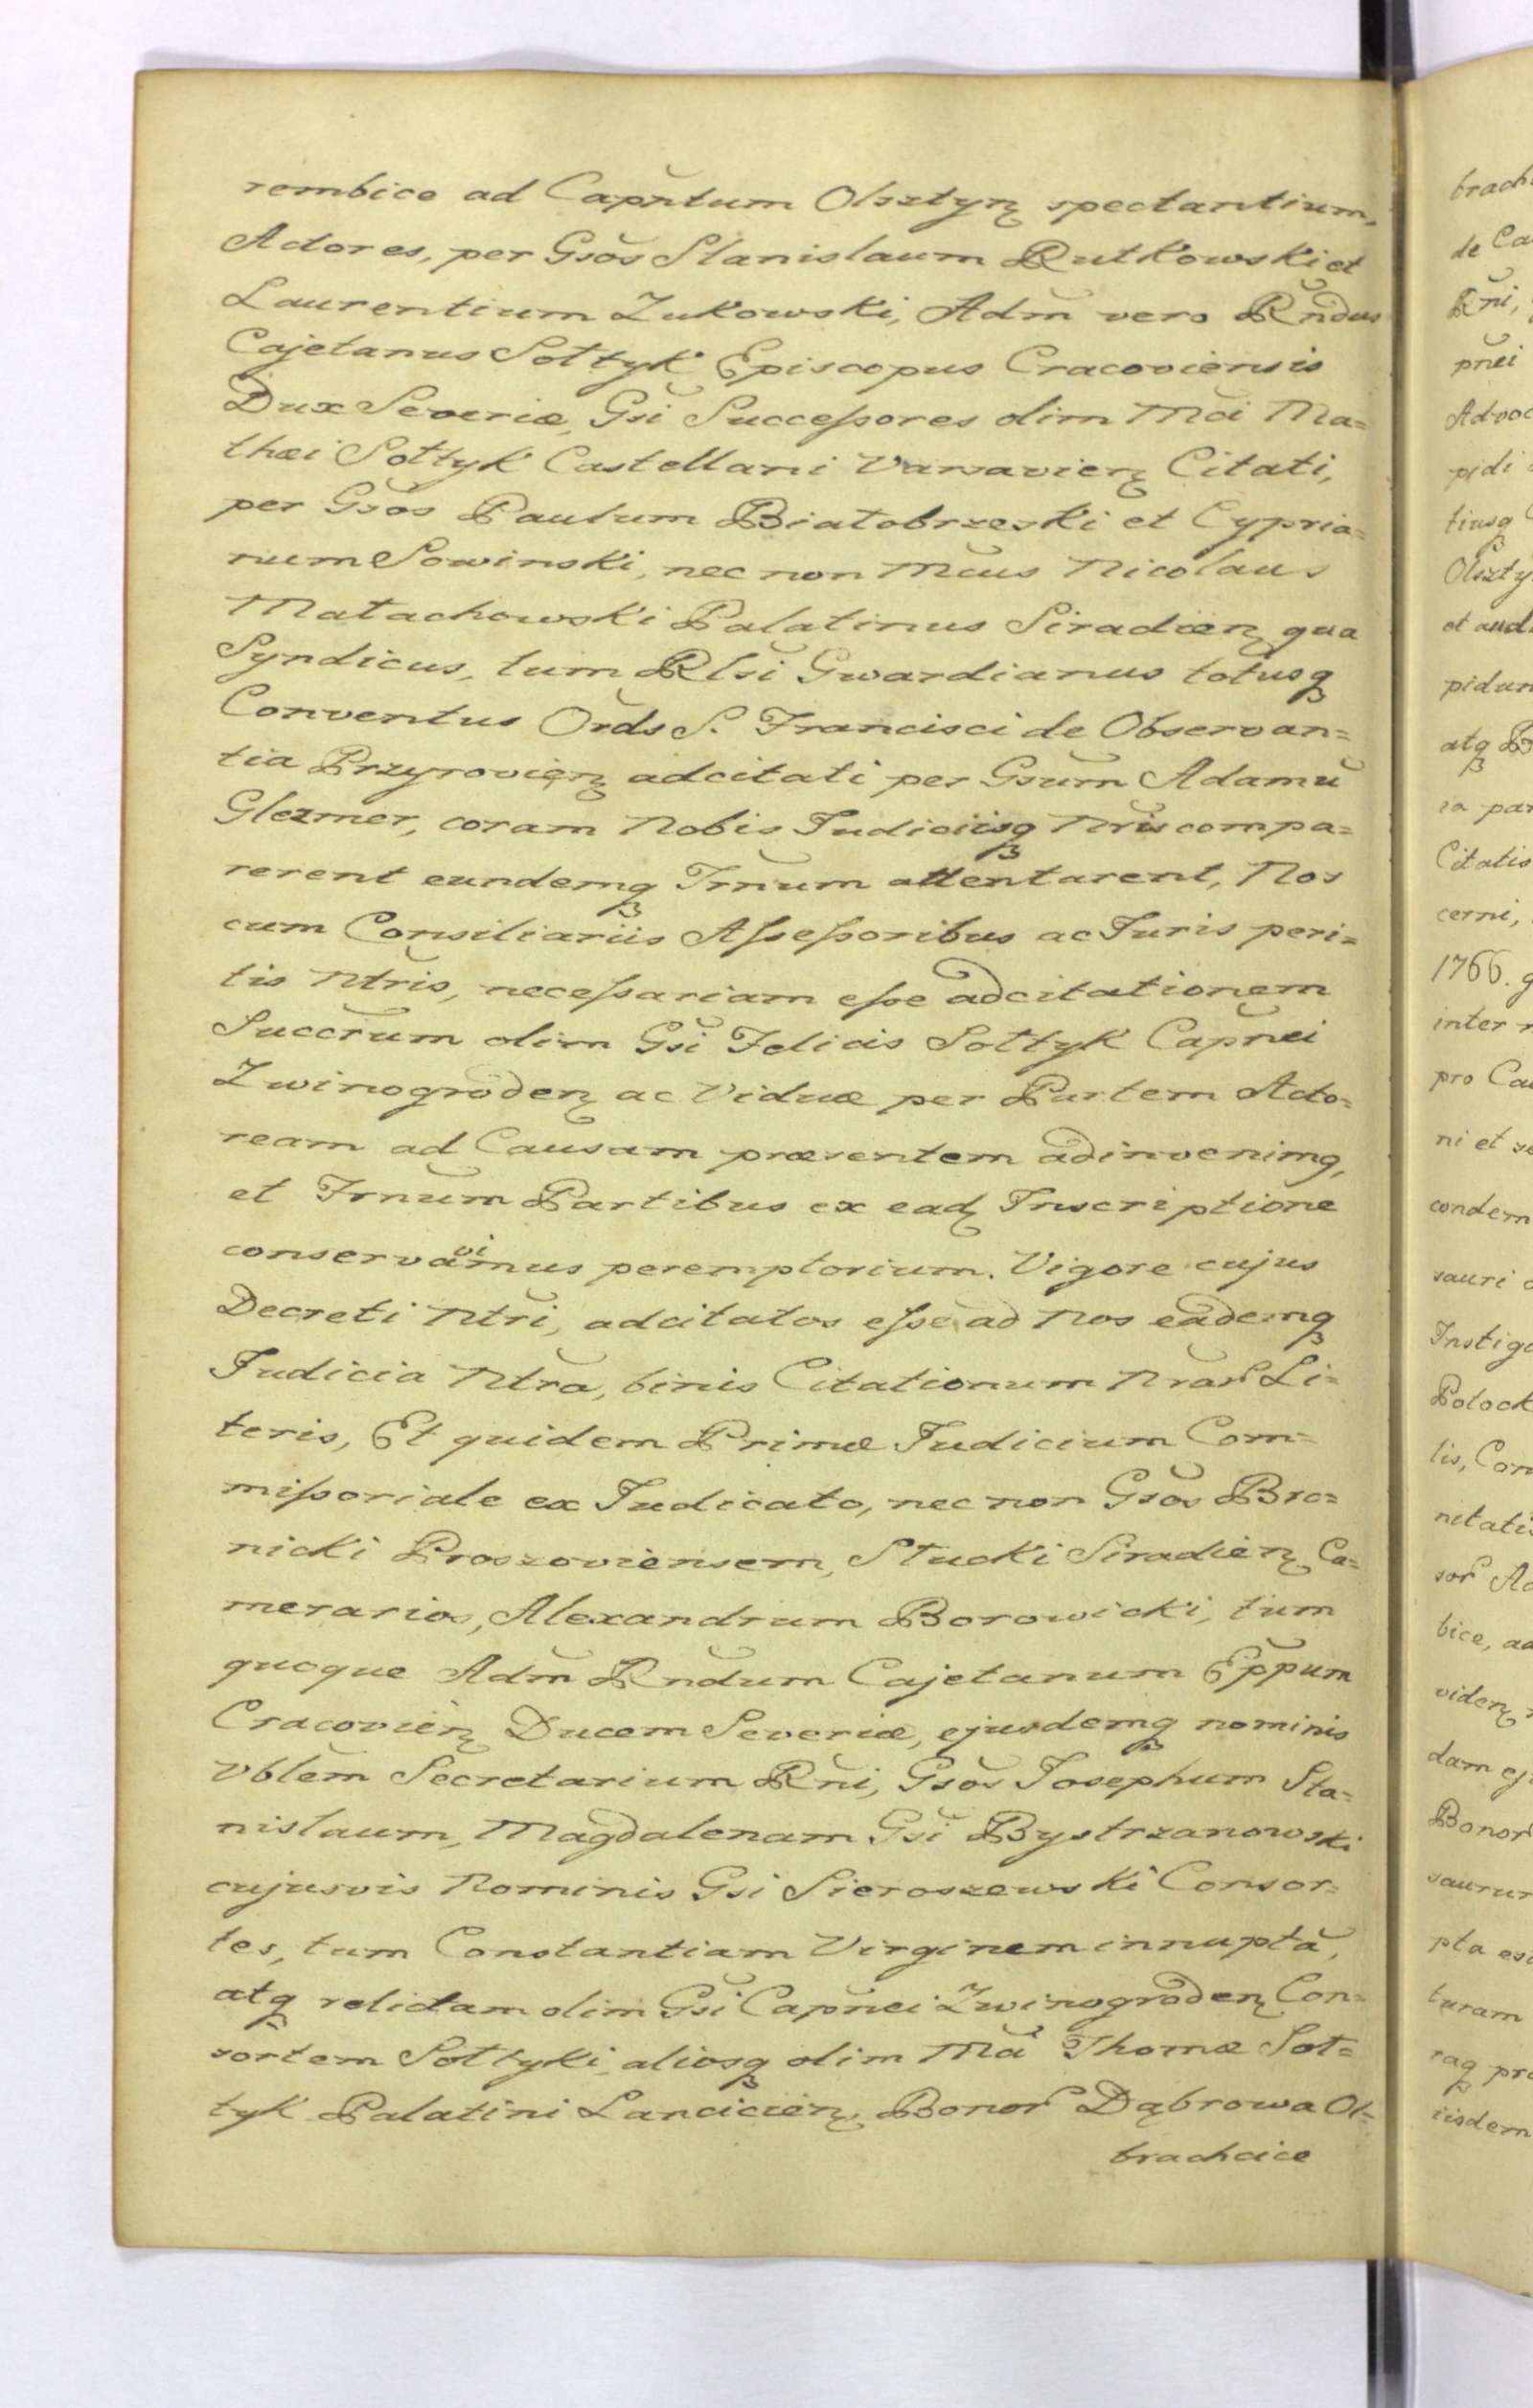 rembice ad Capntum Olsztyn spectantium,
Actores, per Gsos Stanislaum Rutkowski et
Laurentium Zukowski, Adm vero Rndus
Cajetanus Sołtyk Episcopus Cracoviensis
Dux Severiæ, Gsi Succeſsores olim Mci Ma=
thæi Sołtyk Castellani Varsavien Citati,
per Gsos Paulum Białobrzeski et Cypria=
num Sowinski, nec non Mcus Nicolaus
Małachowski Palatinus Siradien qua
Syndicus, tum Rlsi Gwardianus totusq
Conventus Ords S. Francisci de Observan=
tia Przyrovien adcitati per Gsum Adamu
Glezmer, coram Nobis Judiciisq Nris compa=
rerent eundemq Trnum attentarent, Nos
cum Consiliariis Aſseſsoribus ac Juris peri=
tis Ntris, neceſsariam eſse adcitationem
Succrum olim Gsi Felicis Sołtyk Capnei
Zwinogroden ac Viduæ per Partem Acto=
ream ad Causam præsentem adinvenimq,
et Trnum Partibus ex ead Inscriptione
conservavimus peremptorium. Vigore cujus
Decreti Ntri, adcitatos eſse ad Nos eademq
Judicia Ntra, binis Citationum Nrar Li=
teris, Et quidem Primæ Judicium Com=
miſsoriale ex Judicato, nec non Gsos Bro=
nicki Proszoviensem, Stucki Siradien Ca=
merarios, Alexandrum Borowicki, tum
quoque Adm Rndum Cajetanum Eppum
Cracovien Ducem Severiæ, ejusdemq nominis
Vblem Secretarium Rni, Gsos Josephum Sta=
nislaum, Magdalenam Gsi Bystrzanowski
cujusvis Nominis Gsi Sieroszewski Consor=
tes, tum Constantiam Virginem innupta,
atq relictam olim Gsi Capnei Zwinogroden Con=
sortem Sołtyki, aliosq olim Ma Thomæ Soł=
tyk Palatini Lancicien, Bonor Dąbrowa Ol=
brachcice
brach
de Ca
Rni,
pnei
Advoc
pidi
tiusq
Olszty
et aud
pidum
atq
ia par
Citatis
cerni,
1766. q
inter
pro Cau
ni et
condem
sauri
Instiga
Polock
lis, Con
nitatis
sor Ac
bice, ad
viden
dam ej
Bonor
saurur
pta
turam
raq pr
iisdem